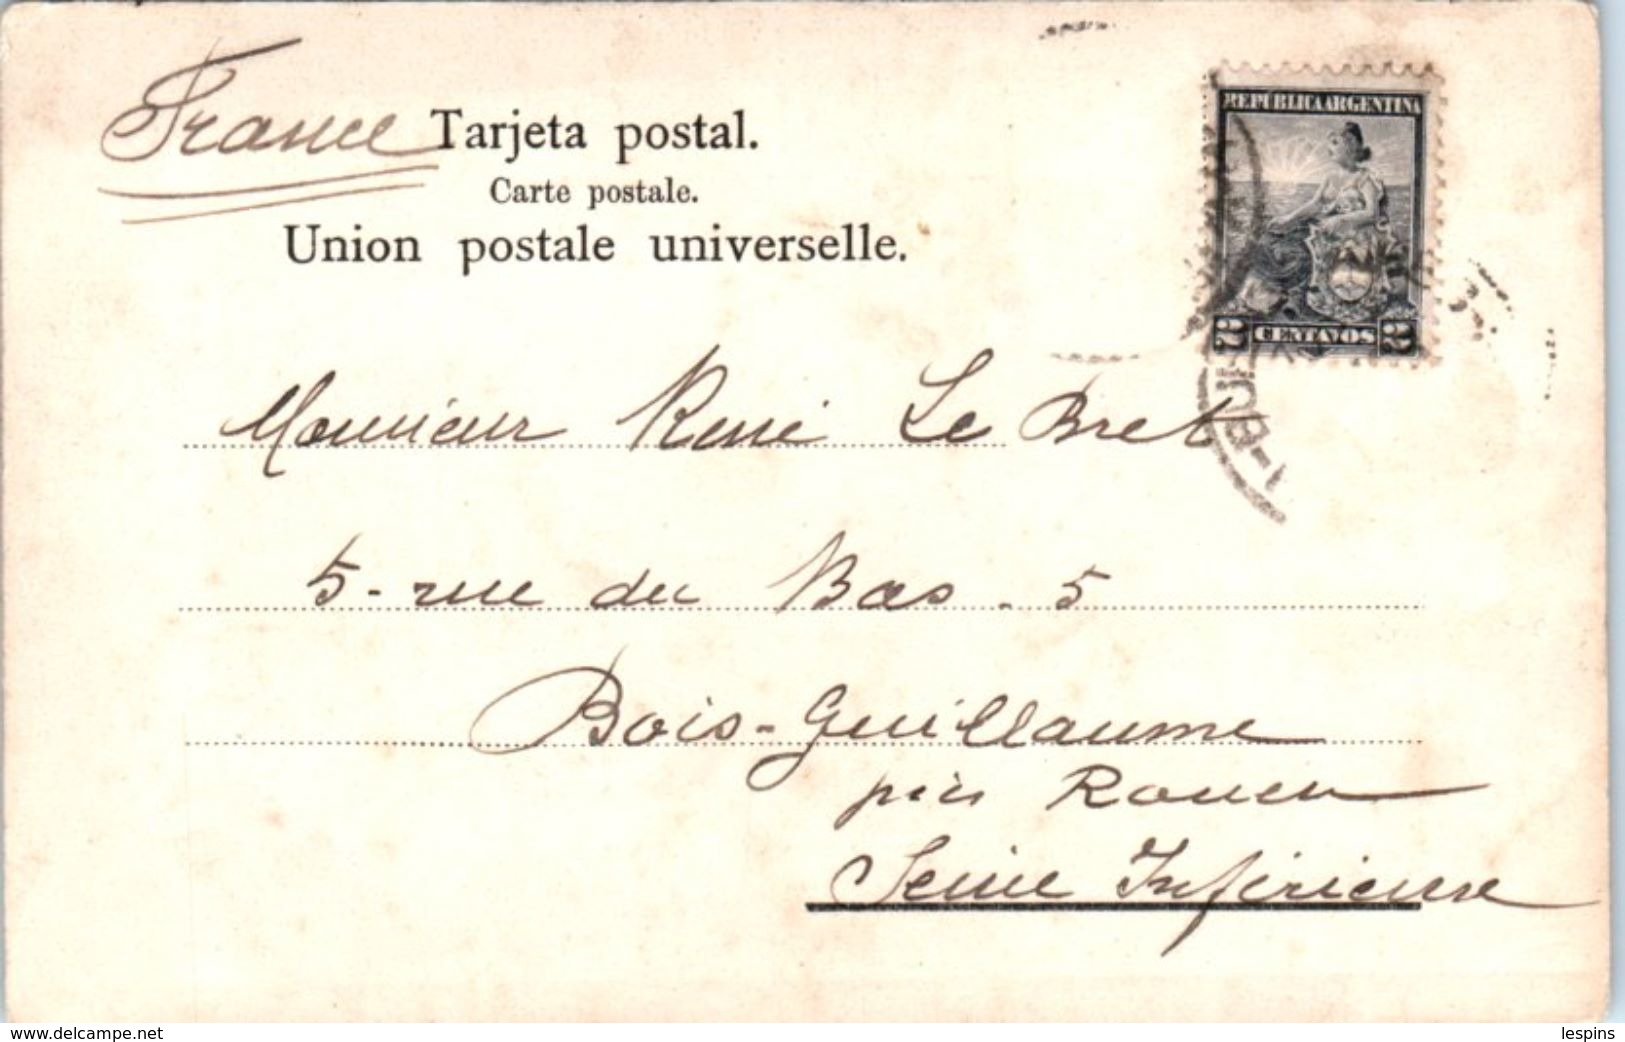 France
Tarjeta postal.
Carte postale.
Union postale universelle.
REPÚBLICA ARGENTINA
2 CENTAVOS 2
Monsieur René Le Bret
5 - rue du Bas - 5
Bois-Guillaume
près Rouen
Seine Inférieure
www.delcampe.net
lespins